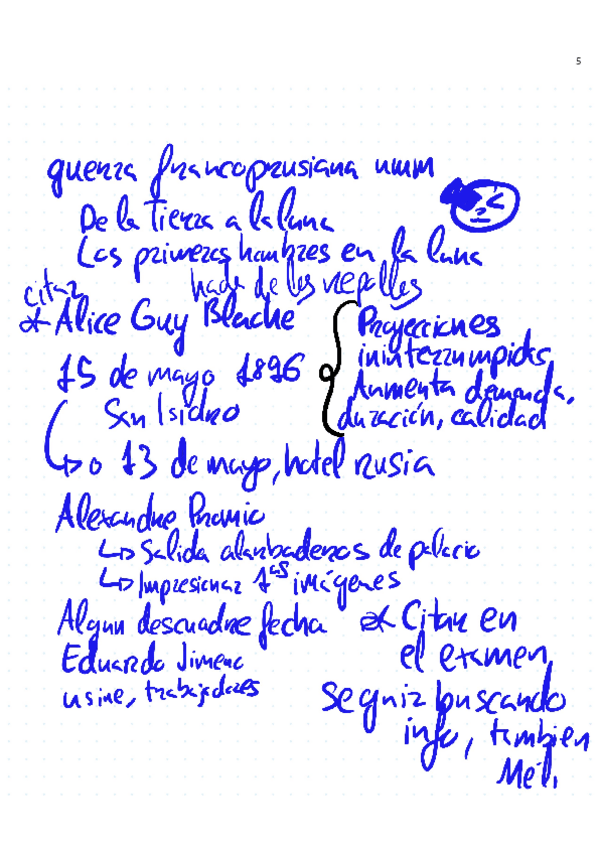 5
guerra francoprusiana umm
De la Tierra a la luna
Los primeros hombres en la luna
hada de los repolles
citar
* Alice Guy Blache
Proyecciones
ininterrumpidas
15 de mayo 1896
Aumenta demanda,
duración, calidad
San Isidro
↳ o 13 de mayo, hotel rusia
Alexandre Promio
↳ Salida alarbaderos de palacio
↳ Impresionar 1as imágenes
Algun descuadre fecha
* Citar en
el examen
Eduardo Jimeno
usine, trabajadores
Seguir buscando
info, tambien
Méli